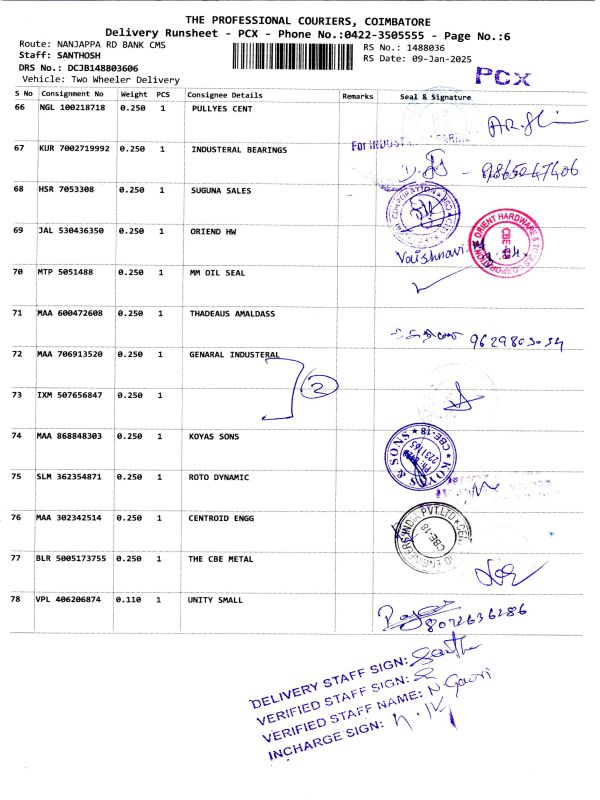 THE PROFESSIONAL COURIERS, COIMBATORE
Delivery Runsheet - PCX - Phone No.:0422-3505555 - Page No.:6
Route: NANJAPPA RD BANK CMS
Staff: SANTHOSH
DRS No.: DCJB148803606
Vehicle: Two Wheeler Delivery
RS No.: 1488036
RS Date: 09-Jan-2025
PCX
S No Consignment No Weight PCS Consignee Details Remarks Seal & Signature
66 NGL 100218718 0.250 1 PULLYES CENT
67 KUR 7002719992 0.250 1 INDUSTERAL BEARINGS
For INDUST
9865247406
68 HSR 7053308 0.250 1 SUGUNA SALES
69 JAL 530436350 0.250 1 ORIEND HW
ORIENT HARDWARE & TOOLS CORPORATION
CBE-18
Vaishnavi
70 MTP 5051488 0.250 1 MM OIL SEAL
71 MAA 600472608 0.250 1 THADEAUS AMALDASS
9629803034
72 MAA 706913520 0.250 1 GENARAL INDUSTERAL
2
73 IXM 507656847 0.250 1
74 MAA 868848303 0.250 1 KOYAS SONS
KOYAS & SONS
CBE-18
2231165
75 SLM 362354871 0.250 1 ROTO DYNAMIC
76 MAA 302342514 0.250 1 CENTROID ENGG
ENGINEERS INDIA PVT.LTD
CBE-18
77 BLR 5005173755 0.250 1 THE CBE METAL
78 VPL 406206874 0.110 1 UNITY SMALL
8072636286
DELIVERY STAFF SIGN:
VERIFIED STAFF SIGN:
VERIFIED STAFF NAME: N. Gaori
INCHARGE SIGN: